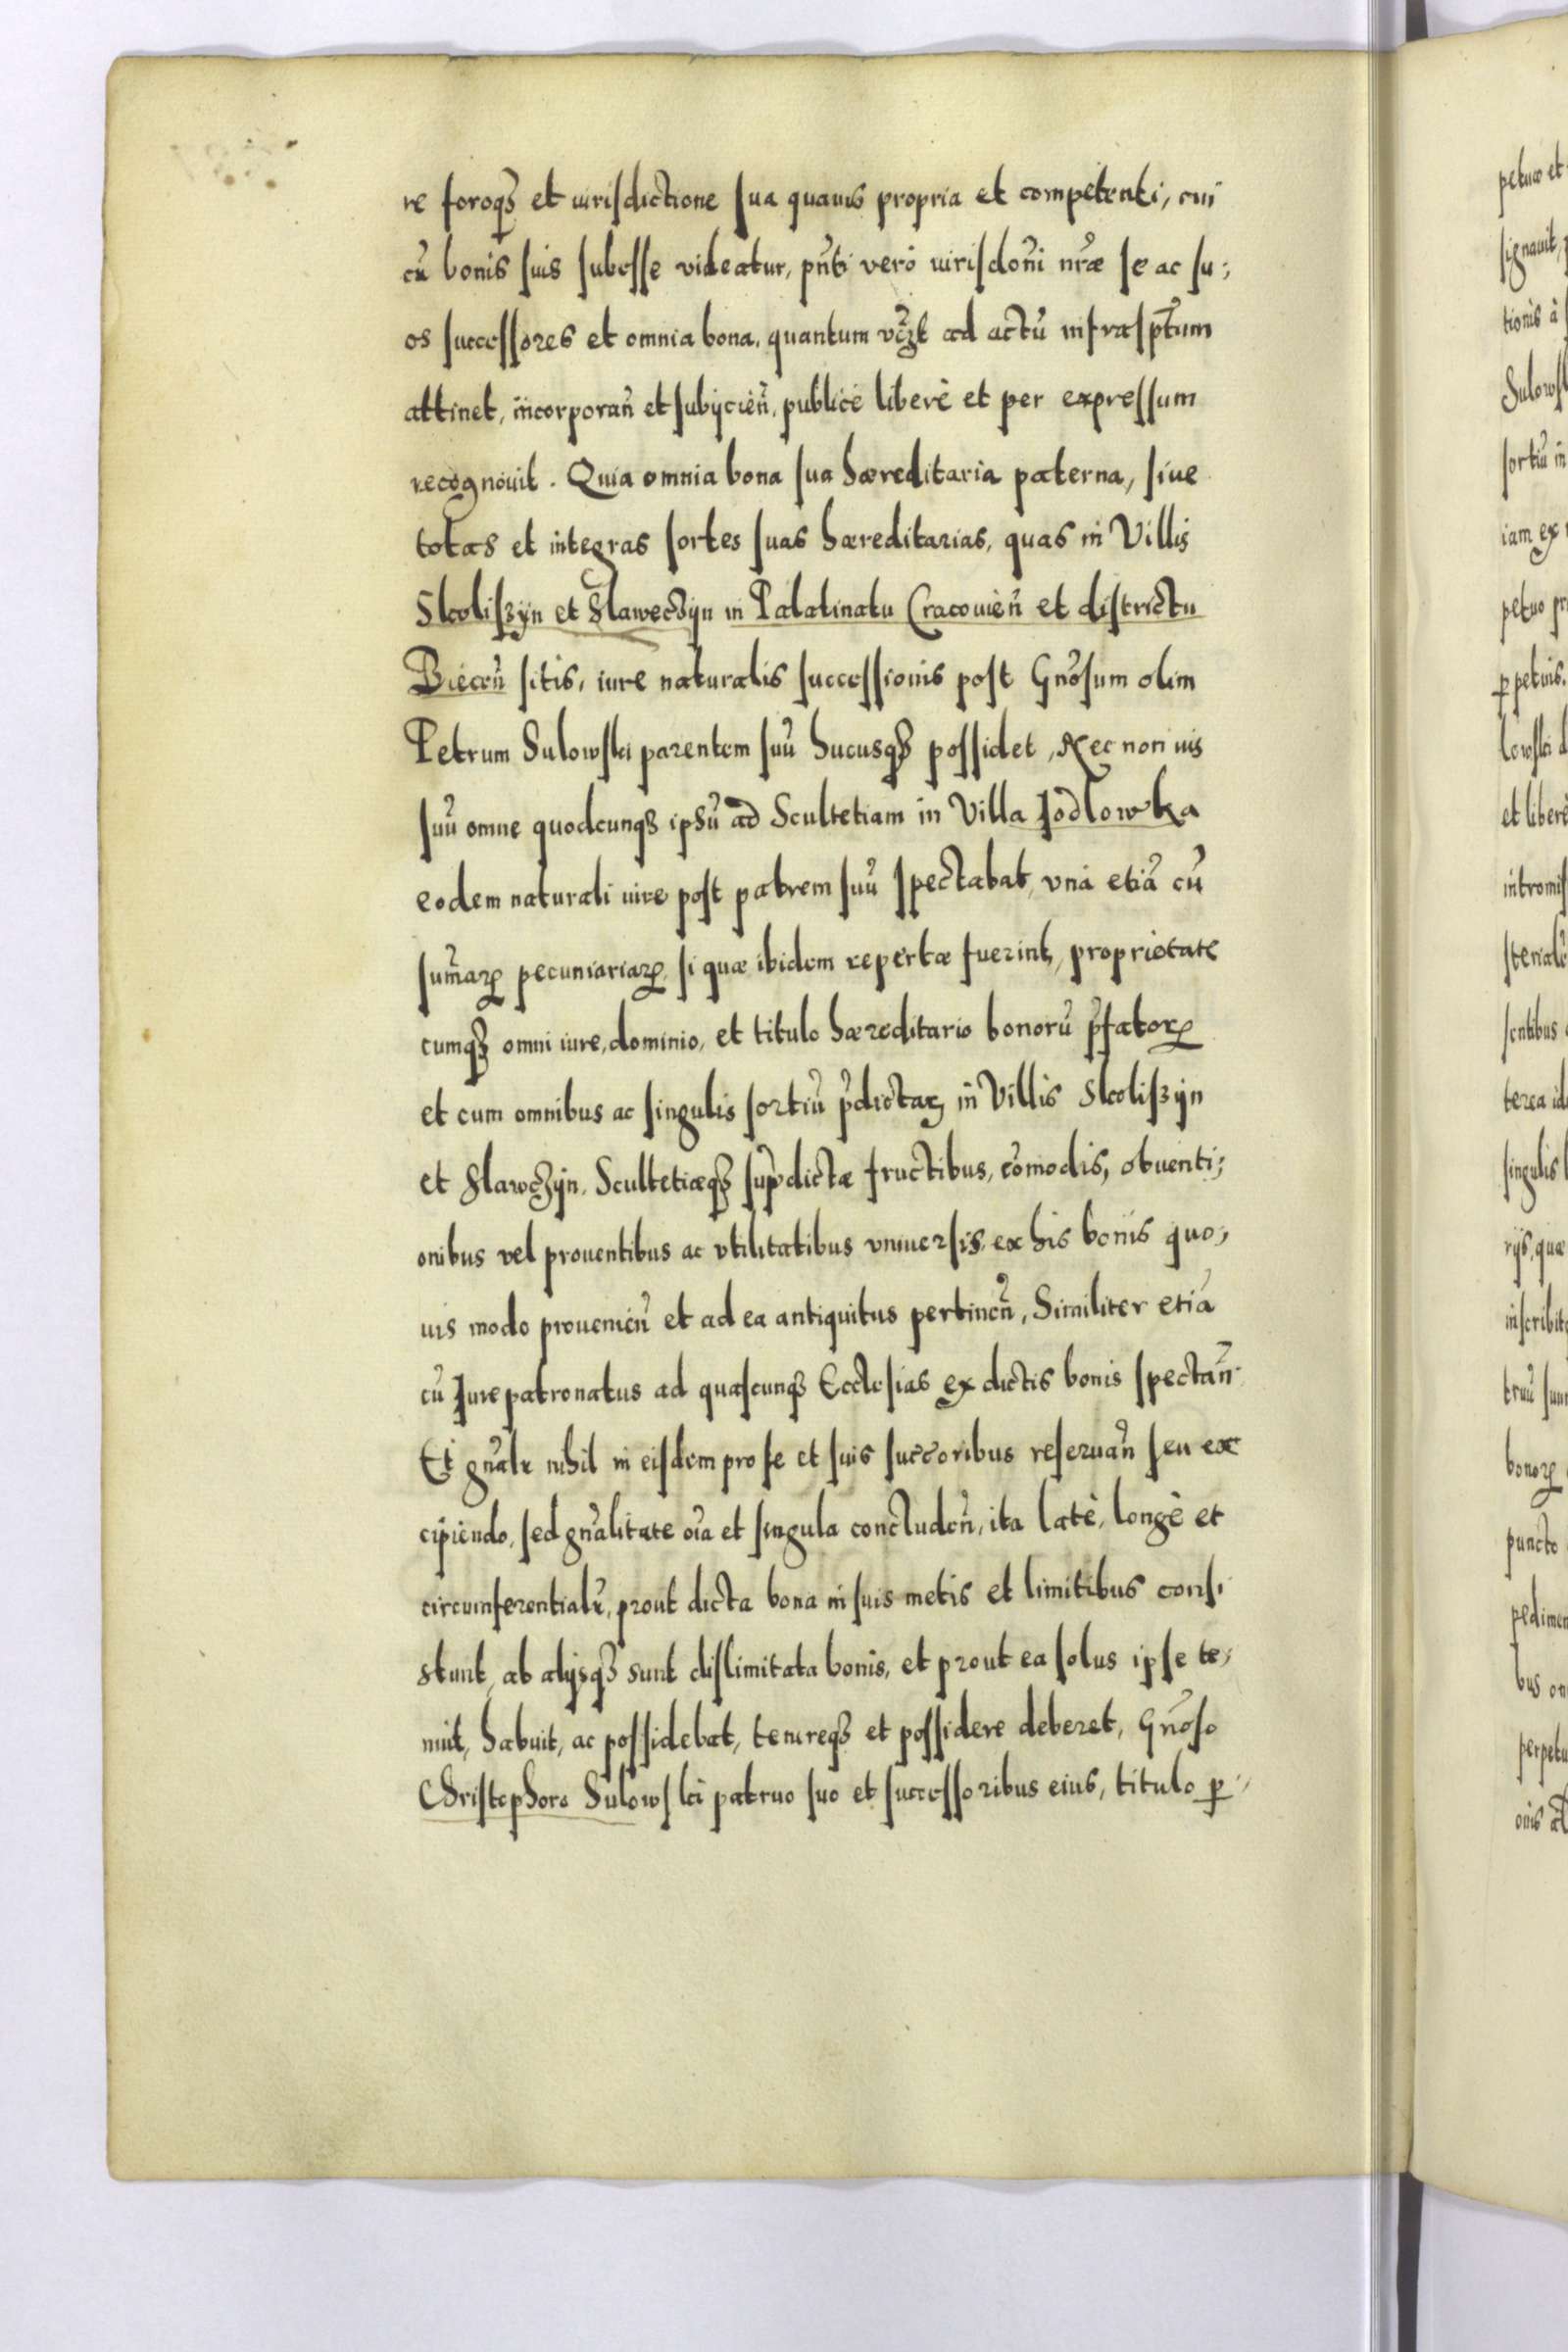 re foroqꝫ et iurisdictione sua quauis propria et competenti, cui
cũ bonis suis subesse videatur, pñti verò iurisdoñi nr̃æ se ac su;
os successores et omnia bona, quantum vcz̃t ad actũ infrasp̃tum
attinet, incorporañ et subijcieñ, publicè liberè et per expressum
recognouit. Quia omnia bona sua hæreditaria paterna, siue
totas et integras sortes suas hæreditarias, quas in Villis
Skoliszyn et Slaweczyn in Palatinatu Cracouieñ et districtu
Biecen̄ sitis, iure naturalis successionis post Gnõsum olim
Petrum Sulowski parentem suũ hucusqꝫ possidet, Nec non ius
suũ omne quodcunqꝫ ipsũ ad Scultetiam in Villa Jodlowka
eodem naturali iure post patrem suũ spectabat, vnà etiã cũ
sum̃aꝝ pecuniariaꝝ, si quæ ibidem repertæ fuerint, proprietate
cumqꝫ omni iure, dominio, et titulo hæreditario bonorũ p̃fatoꝝ
et cum omnibus ac singulis sortiũ p̃dictaꝝ in Villis Skoliszyn
et Slawczyn, Scultetiæqꝫ sup̃dictæ fructibus, cõmodis, obuenti;
onibus vel prouentibus ac vtilitatibus vniuersis, ex his bonis quo,
uis modo proueniẽn et ad ea antiquitus pertineñ, Similiter etiã
cũ Jure patronatus ad quascunqꝫ Ecclesias ex dictis bonis spectañ.
Et gñalr nihil in eisdem pro se et suis succ̃oribus reseruañ seu ex
cipiendo, sed gñalitate oĩa et singula concludeñ, ita latè, longè et
circumferentialr̃, prout dicta bona in suis metis et limitibus consi
stunt, ab alijsqꝫ sunt dislimitata bonis, et prout ea solus ipse te,
nuit, habuit, ac possidebat, tenereqꝫ et possidere deberet, Gnõso
Christophoro Sulowski patruo suo et successoribus eius, titulo ꝑ